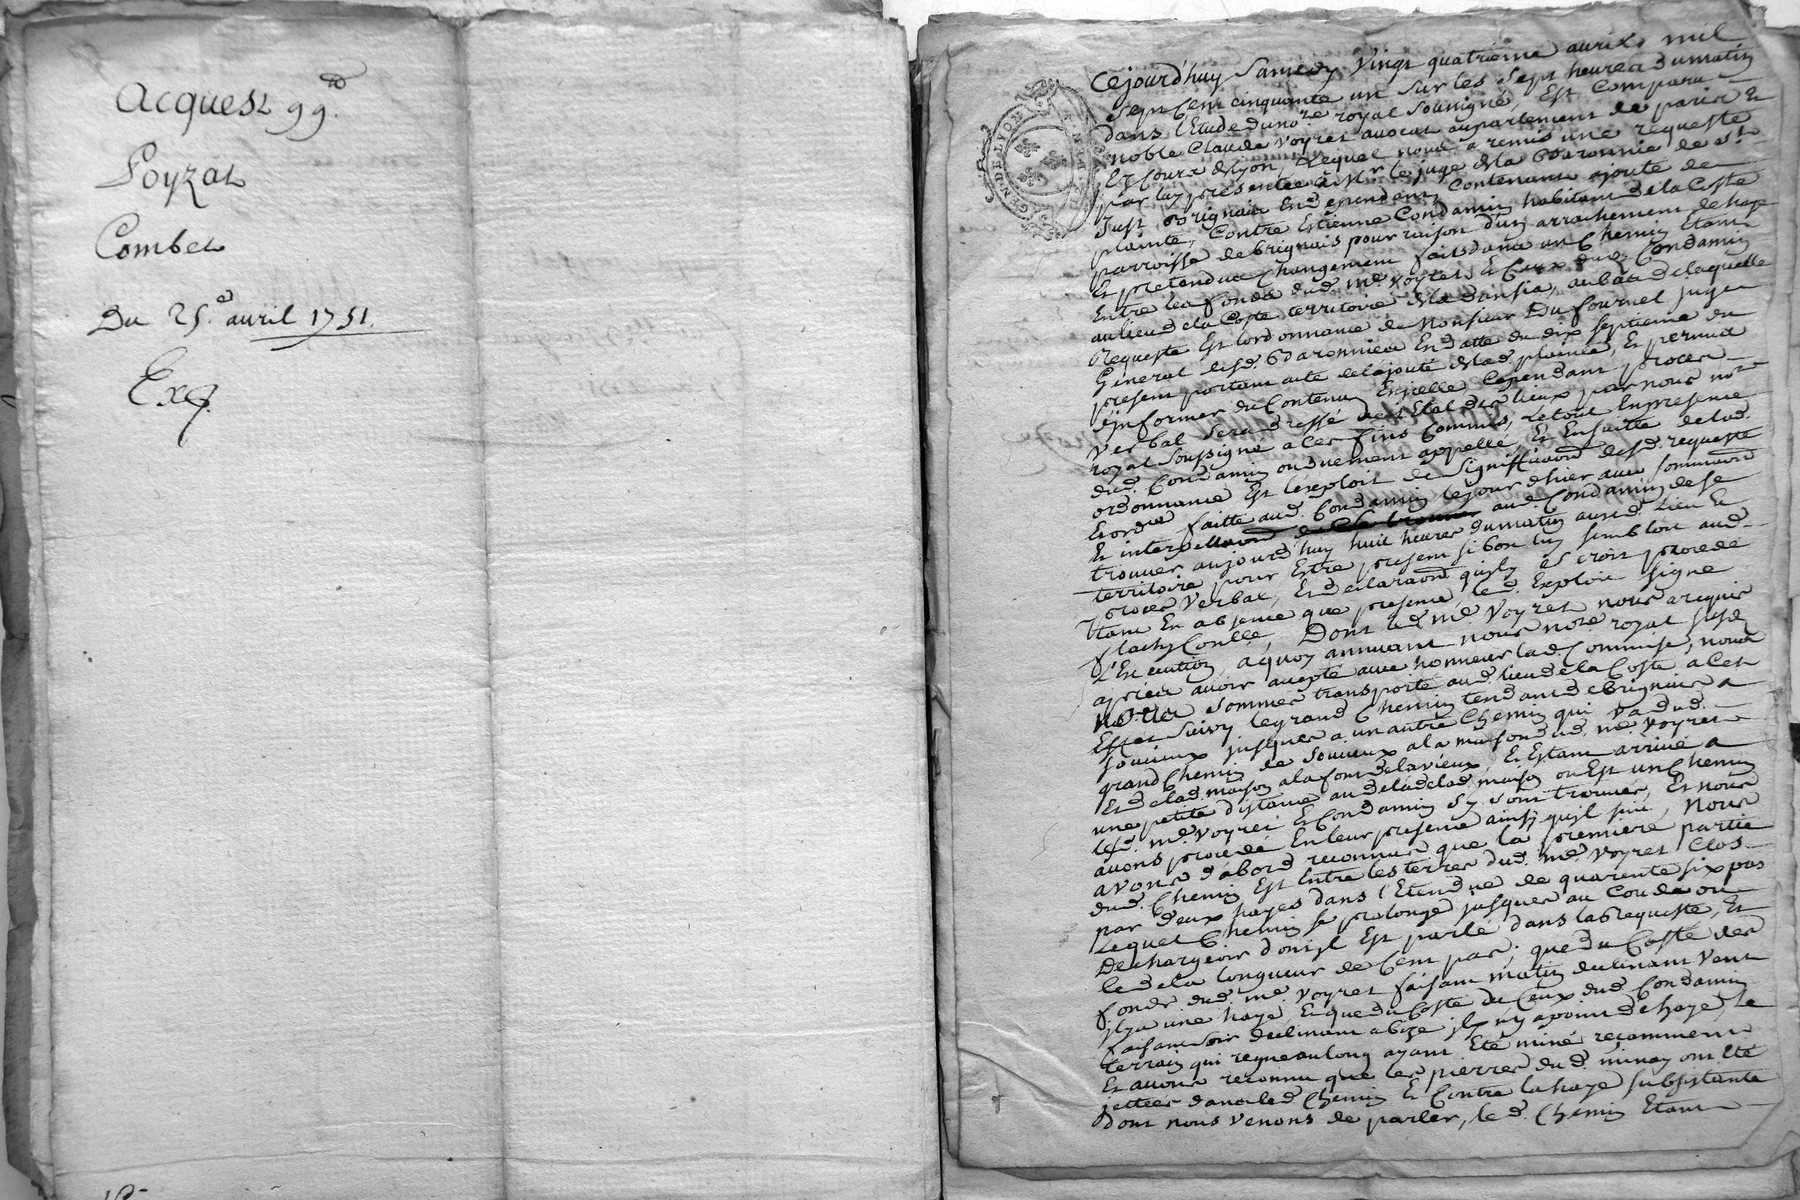 Acquest 99.
Poyzat
Combet
Du 25e. avril 1751.
Exp.
GEN. DE LYON
Cejourd'huy Samedy Vingt quatrieme avril mil
Sept Cent cinquante un sur les Sept heures du matin
dans l'Etude du nore royal Soussigné, Est Comparu
noble Claude Voyret avocat au parlement de paris Et
Ez Cours de Lyon, Lequel nous a remis une requeste
par luy presentée a Mr. le juge de la Baronnie de St.
Just Brignais En dependant, Contenant ajouté de
plainte, Contre Estienne Condamin habitant de la Coste
parroisse de brignais pour raison d'un arrachement de haye
Et pretendu Changement fait dans un Chemin Etant
Entre les fonds dud. me. Voyret Et Ceux dud. Condamin
au lieu de la Coste territoire de la dansia, au bas de laquelle
Requeste Est l'ordonnance de Monsieur Du fournel juge
General desd. Baronnies En datte du dix septieme du
present portant acte de l'ajouté de lad. plainte, Et permis
d'informer du Contenu En icelle Cependant proces
Verbal sera dressé de l'Etat des lieux par nous nore
royal Soussigné a Ces fins Commis, Le tout En presence
dud. Condamin ou duement appellé, Et En suitte de lad.
ordonnance Est l'exploit de Signiffication desd. requeste
Et ordce faitte aud. Condamin le jour d'hier avec sommation
Et interpellation aud. Condamin de se
trouver aujourd'huy huit heures du matin ausd. Lieu Et
territoire pour Estre present si bon luy sembloit aud.
proces Verbal, Et declaration quil y seroit procedé
tant En absence que presence led. Exploit signé
flachy Conllé, Dont led. me. Voyret nous a requis
l'Execution, a quoy annuant nous nore royal susd.
apres avoir accepté avec honneur lad. Commise, nous
nous sommes transporté aud. lieu de la Coste a Cet
Effet Suivy le grand Chemin tendant de brignais a
Souvieux jusques a un autre Chemin qui Va dud.
grand Chemin de Souvieux a la maison dud. me. Voyret
Et de lad. maison a la font de lavieux, Et Estant arrivé a
une petite distance au dela de lad. maison ou Est un Chemin
led. me. Voyret Et Condamin s'y sont trouvés, Et nous
avons procedé En leur presence ainsy quil suit, Nous
avons d'abord reconnus que la premiere partie
dud. Chemin Est Entre les terres dud. me. Voyret Clos
par deux hayes dans l'Etendue de quarente six pas
Lequel Chemin se prolonge jusques au Coude ou
Dechargeoir dont il Est parlé dans la Requeste, Et
le de la longueur de Cent pas, que du Costé des
fonds dud. me. Voyret faisant matin declinant Vent
il y a une haye, Et que du Costé de Ceux dud. Condamin
faisant soir declinant a bize il n'y a point de haye, le
terrein qui regne au long ayant Eté miné recemment
Et avons reconnu que les pierres dud. minay ont Eté
jettées dans led. Chemin Et Contre la haye subsistante
Dont nous venons de parler, le d. Chemin Etant